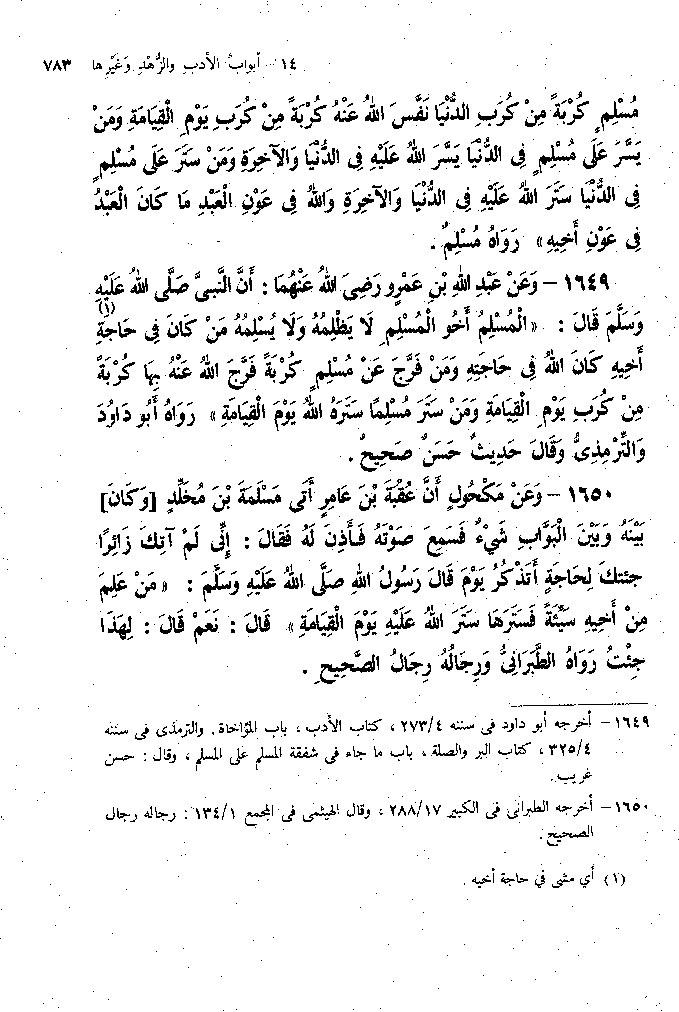 ١٤ - أبوابُ الأدبِ والزُّهْدِ وَغَيْرِها ٧٨٣
مُسْلِمٍ كُرْبَةً مِنْ كُرَبِ الدُّنْيَا نَفَّسَ اللهُ عَنْهُ كُرْبَةً مِنْ كُرَبِ يَوْمِ الْقِيَامَةِ وَمَنْ
يَسَّرَ عَلَى مُسْلِمٍ فِى الدُّنْيَا يَسَّرَ اللهُ عَلَيْهِ فِى الدُّنْيَا وَالآخِرَةِ وَمَنْ سَتَرَ عَلَى مُسْلِمٍ
فِى الدُّنْيَا سَتَرَ اللهُ عَلَيْهِ فِى الدُّنْيَا وَالآخِرَةِ وَاللهُ فِى عَوْنِ الْعَبْدِ مَا كَانَ الْعَبْدُ
فِى عَوْنِ أَخِيهِ» رَوَاهُ مُسْلِمٌ .
١٦٤٩ - وَعَنْ عَبْدِ اللهِ بْنِ عَمْرٍو رَضِىَ اللهُ عَنْهُمَا : أَنَّ النَّبِىَّ صَلَّى اللهُ عَلَيْهِ
وَسَلَّمَ قَالَ : «الْمُسْلِمُ أَخُو الْمُسْلِمِ لَا يَظْلِمُهُ وَلَا يُسْلِمُهُ مَنْ كَانَ فِى حَاجَةِ(١)
أَخِيهِ كَانَ اللهُ فِى حَاجَتِهِ وَمَنْ فَرَّجَ عَنْ مُسْلِمٍ كُرْبَةً فَرَّجَ اللهُ عَنْهُ بِهَا كُرْبَةً
مِنْ كُرَبِ يَوْمِ الْقِيَامَةِ وَمَنْ سَتَرَ مُسْلِمًا سَتَرَهُ اللهُ يَوْمَ الْقِيَامَةِ» رَوَاهُ أَبُو دَاوُدَ
وَالتِّرْمِذِىُّ وَقَالَ حَدِيثٌ حَسَنٌ صَحِيحٌ .
١٦٥٠ - وَعَنْ مَكْحُولٍ أَنَّ عُقْبَةَ بْنَ عَامِرٍ أَتَى مَسْلَمَةَ بْنَ مُخَلَّدٍ [وَكَانَ]
بَيْنَهُ وَبَيْنَ الْبَوَّابِ شَىْءٌ فَسَمِعَ صَوْتَهُ فَأَذِنَ لَهُ فَقَالَ : إِنِّى لَمْ آتِكَ زَائِرًا
جِئْتُكَ لِحَاجَةٍ أَتَذْكُرُ يَوْمَ قَالَ رَسُولُ اللهِ صَلَّى اللهُ عَلَيْهِ وَسَلَّمَ : «مَنْ عَلِمَ
مِنْ أَخِيهِ سَيِّئَةً فَسَتَرَهَا سَتَرَ اللهُ عَلَيْهِ يَوْمَ الْقِيَامَةِ» قَالَ : نَعَمْ قَالَ : لِهَذَا
جِئْتُ رَوَاهُ الطَّبَرَانِىُّ وَرِجَالُهُ رِجَالُ الصَّحِيحِ .
١٦٤٩- أخرجه أبو داود فى سننه ٢٧٣/٤ ، كتاب الأدب ، باب المؤاخاة. والترمذى فى سننه
٣٢٥/٤ ، كتاب البر والصلة ، باب ما جاء فى شفقة المسلم على المسلم ، وقال : حسن
غريب.
١٦٥٠- أخرجه الطبرانى فى الكبير ٢٨٨/١٧ ، وقال الهيثمى فى المجمع ١٣٤/١ : رجاله رجال
الصحيح.
(١) أي مشى في حاجة أخيه .